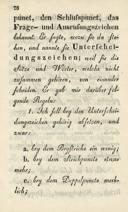 78
punct, den Schlußpunct, das
Frage- und Ausrufungszeichen
bekannt. Er sagte, wozu sie da sei-
en, und nannte sie Unterschei-
dungszeichen; weil sie die
Sätze und Wörter, welche nicht
zusammen gehören, von einander
scheiden. Er gab mir darüber fol-
gende Regeln:
1. Ich soll bey den Unterschei-
dungszeichen gehörig absetzen, und
zwar:
a. bey dem Beystriche ein wenig;
b. bey dem Strichpuncte etwas
mehr;
c. bey dem Doppelpuncte merk-
lich;